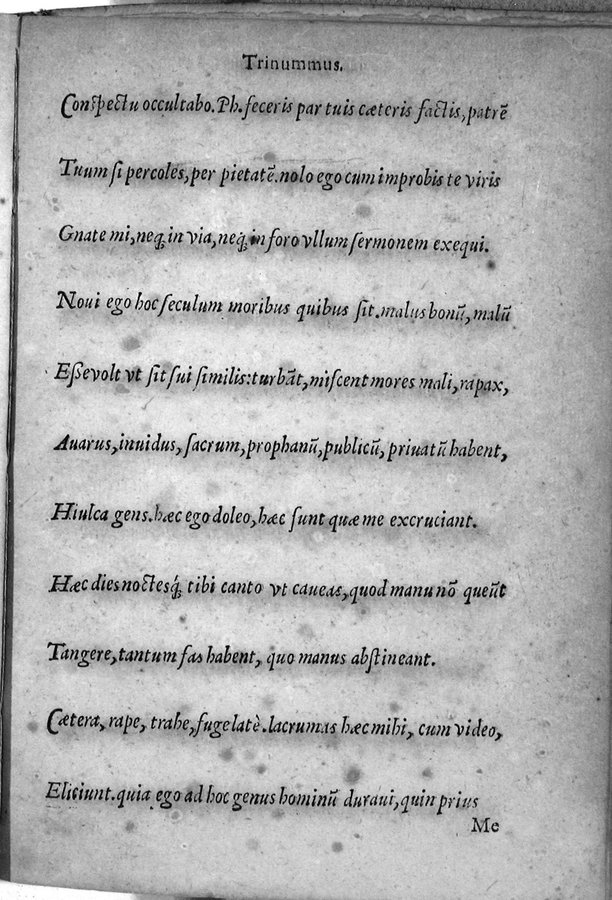 Trinummus.
Conſpectu occultabo. Ph. feceris par tuis cæteris factis, patrẽ
Tuum ſi percoles, per pietatẽ. nolo ego cum improbis te viris
Gnate mi, neq́; in via, neq́; in foro vllum ſermonem exequi.
Noui ego hoc ſeculum moribus quibus ſit. malus bonũ, malũ
Eßevolt vt ſit ſui ſimilis: turbãt, miſcent mores mali, rapax,
Auarus, inuidus, ſacrum, prophanũ, publicũ, priuatũ habent,
Hiulca gens. hæc ego doleo, hæc ſunt quæ me excruciant.
Hæc dies noctesq́; tibi canto vt caueas, quod manu nõ queũt
Tangere, tantum fas habent, quo manus abſtineant.
Cætera, rape, trahe, fuge latè. lacrumas hæc mihi, cum video,
Eliciunt. quia ego ad hoc genus hominũ duraui, quin prius
Me